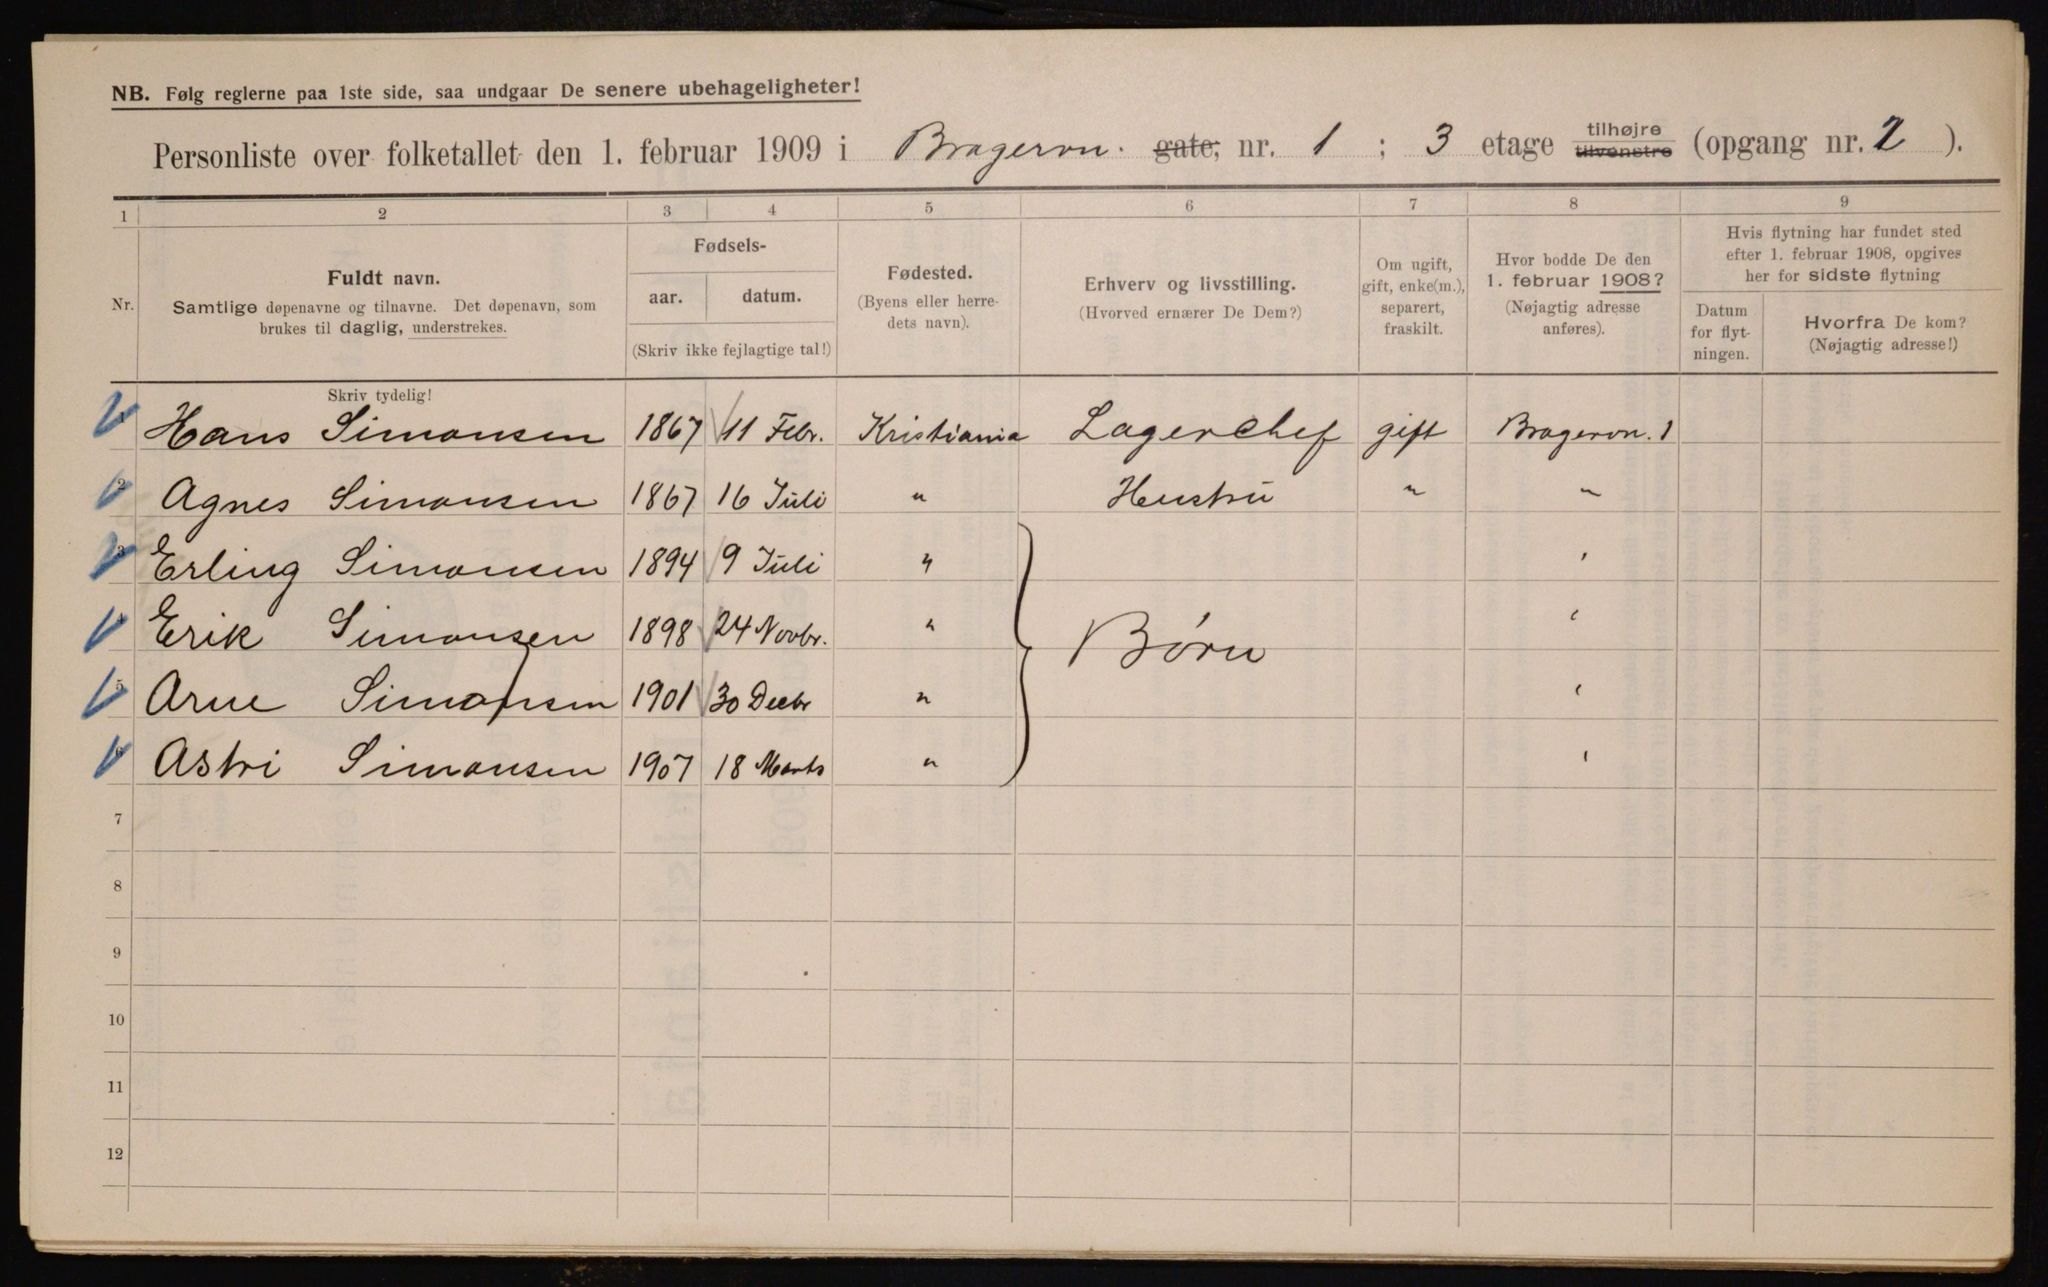 NB. Følg reglerne paa 1ste side, saa undgaar De senere ubehageligheter!
Personliste over folketallet den 1. februar 1909 i Brageron. gate, nr. 1 ; 3 etage tilhøjre tilvenstre (opgang nr. 2 ).
1 2 3 4 5 6 7 8 9
Nr.
Fuldt navn.
Samtlige døpenavne og tilnavne. Det døpenavn, som
brukes til daglig, understrekes.
Fødsels-
aar. datum.
(Skriv ikke fejlagtige tal!)
Fødested.
(Byens eller herre-
dets navn).
Erhverv og livsstilling.
(Hvorved ernærer De Dem?)
Om ugift,
gift, enke(m.),
separert,
fraskilt.
Hvor bodde De den
1. februar 1908?
(Nøjagtig adresse
anføres).
Hvis flytning har fundet sted
efter 1. februar 1908, opgives
her for sidste flytning
Datum
for flyt-
ningen.
Hvorfra De kom?
(Nøjagtig adresse!)
Skriv tydelig!
1 Hans Simonsen 1867 11 Febr. Kristiania Lagerchef gift Brageron. 1
2 Agnes Simonsen 1867 16 Juli " Hustru " "
3 Erling Simonsen 1894 9 Juli " '
4 Erik Simonsen 1898 24 Novbr. " '
Børn
5 Arne Simonsen 1901 30 Decbr " '
6 Astri Simonsen 1907 18 Marts " '
7
8
9
10
11
12